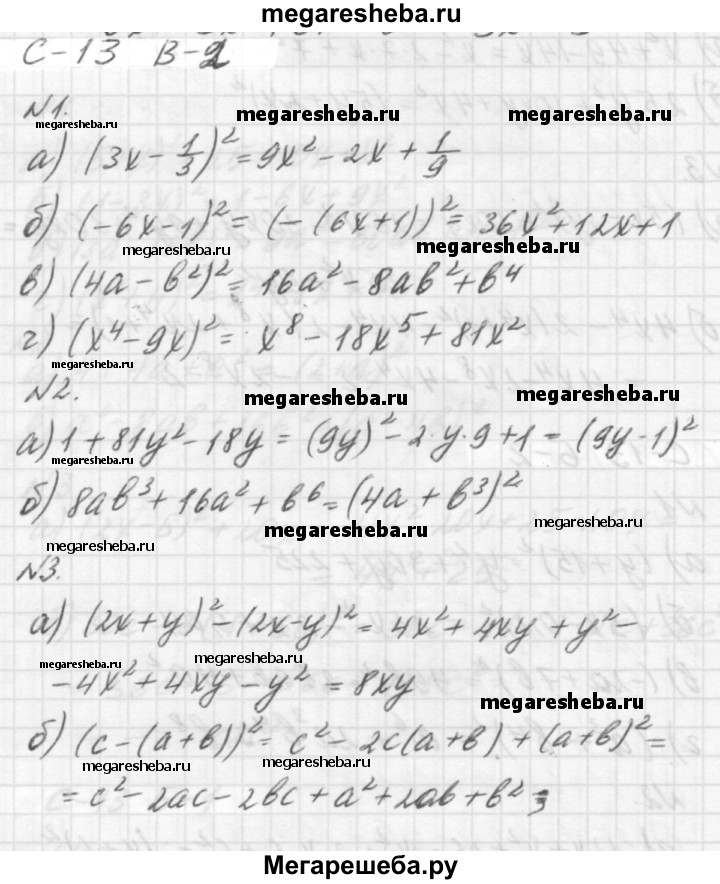 megaresheba.ru
С-13 В-2
№1.
megaresheba.ru megaresheba.ru megaresheba.ru
а) (3x - 1/3)² = 9x² - 2x + 1/9
б) (-6x-1)² = (-(6x+1))² = 36x² + 12x + 1
megaresheba.ru megaresheba.ru
в) (4a - b²)² = 16a² - 8ab² + b⁴
г) (x⁴ - 9x)² = x⁸ - 18x⁵ + 81x²
megaresheba.ru
№2.
megaresheba.ru megaresheba.ru
а) 1 + 81y² - 18y = (9y)² - 2·y·9 + 1 = (9y-1)²
megaresheba.ru
б) 8ab³ + 16a² + b⁶ = (4a + b³)²
megaresheba.ru megaresheba.ru
megaresheba.ru
№3.
а) (2x+y)² - (2x-y)² = 4x² + 4xy + y² -
megaresheba.ru megaresheba.ru
- 4x² + 4xy - y² = 8xy
megaresheba.ru
б) (c - (a+b))² = c² - 2c(a+b) + (a+b)² =
megaresheba.ru megaresheba.ru
= c² - 2ac - 2bc + a² + 2ab + b²;
megaresheba.ru megaresheba.ru
Мегарешеба.ру